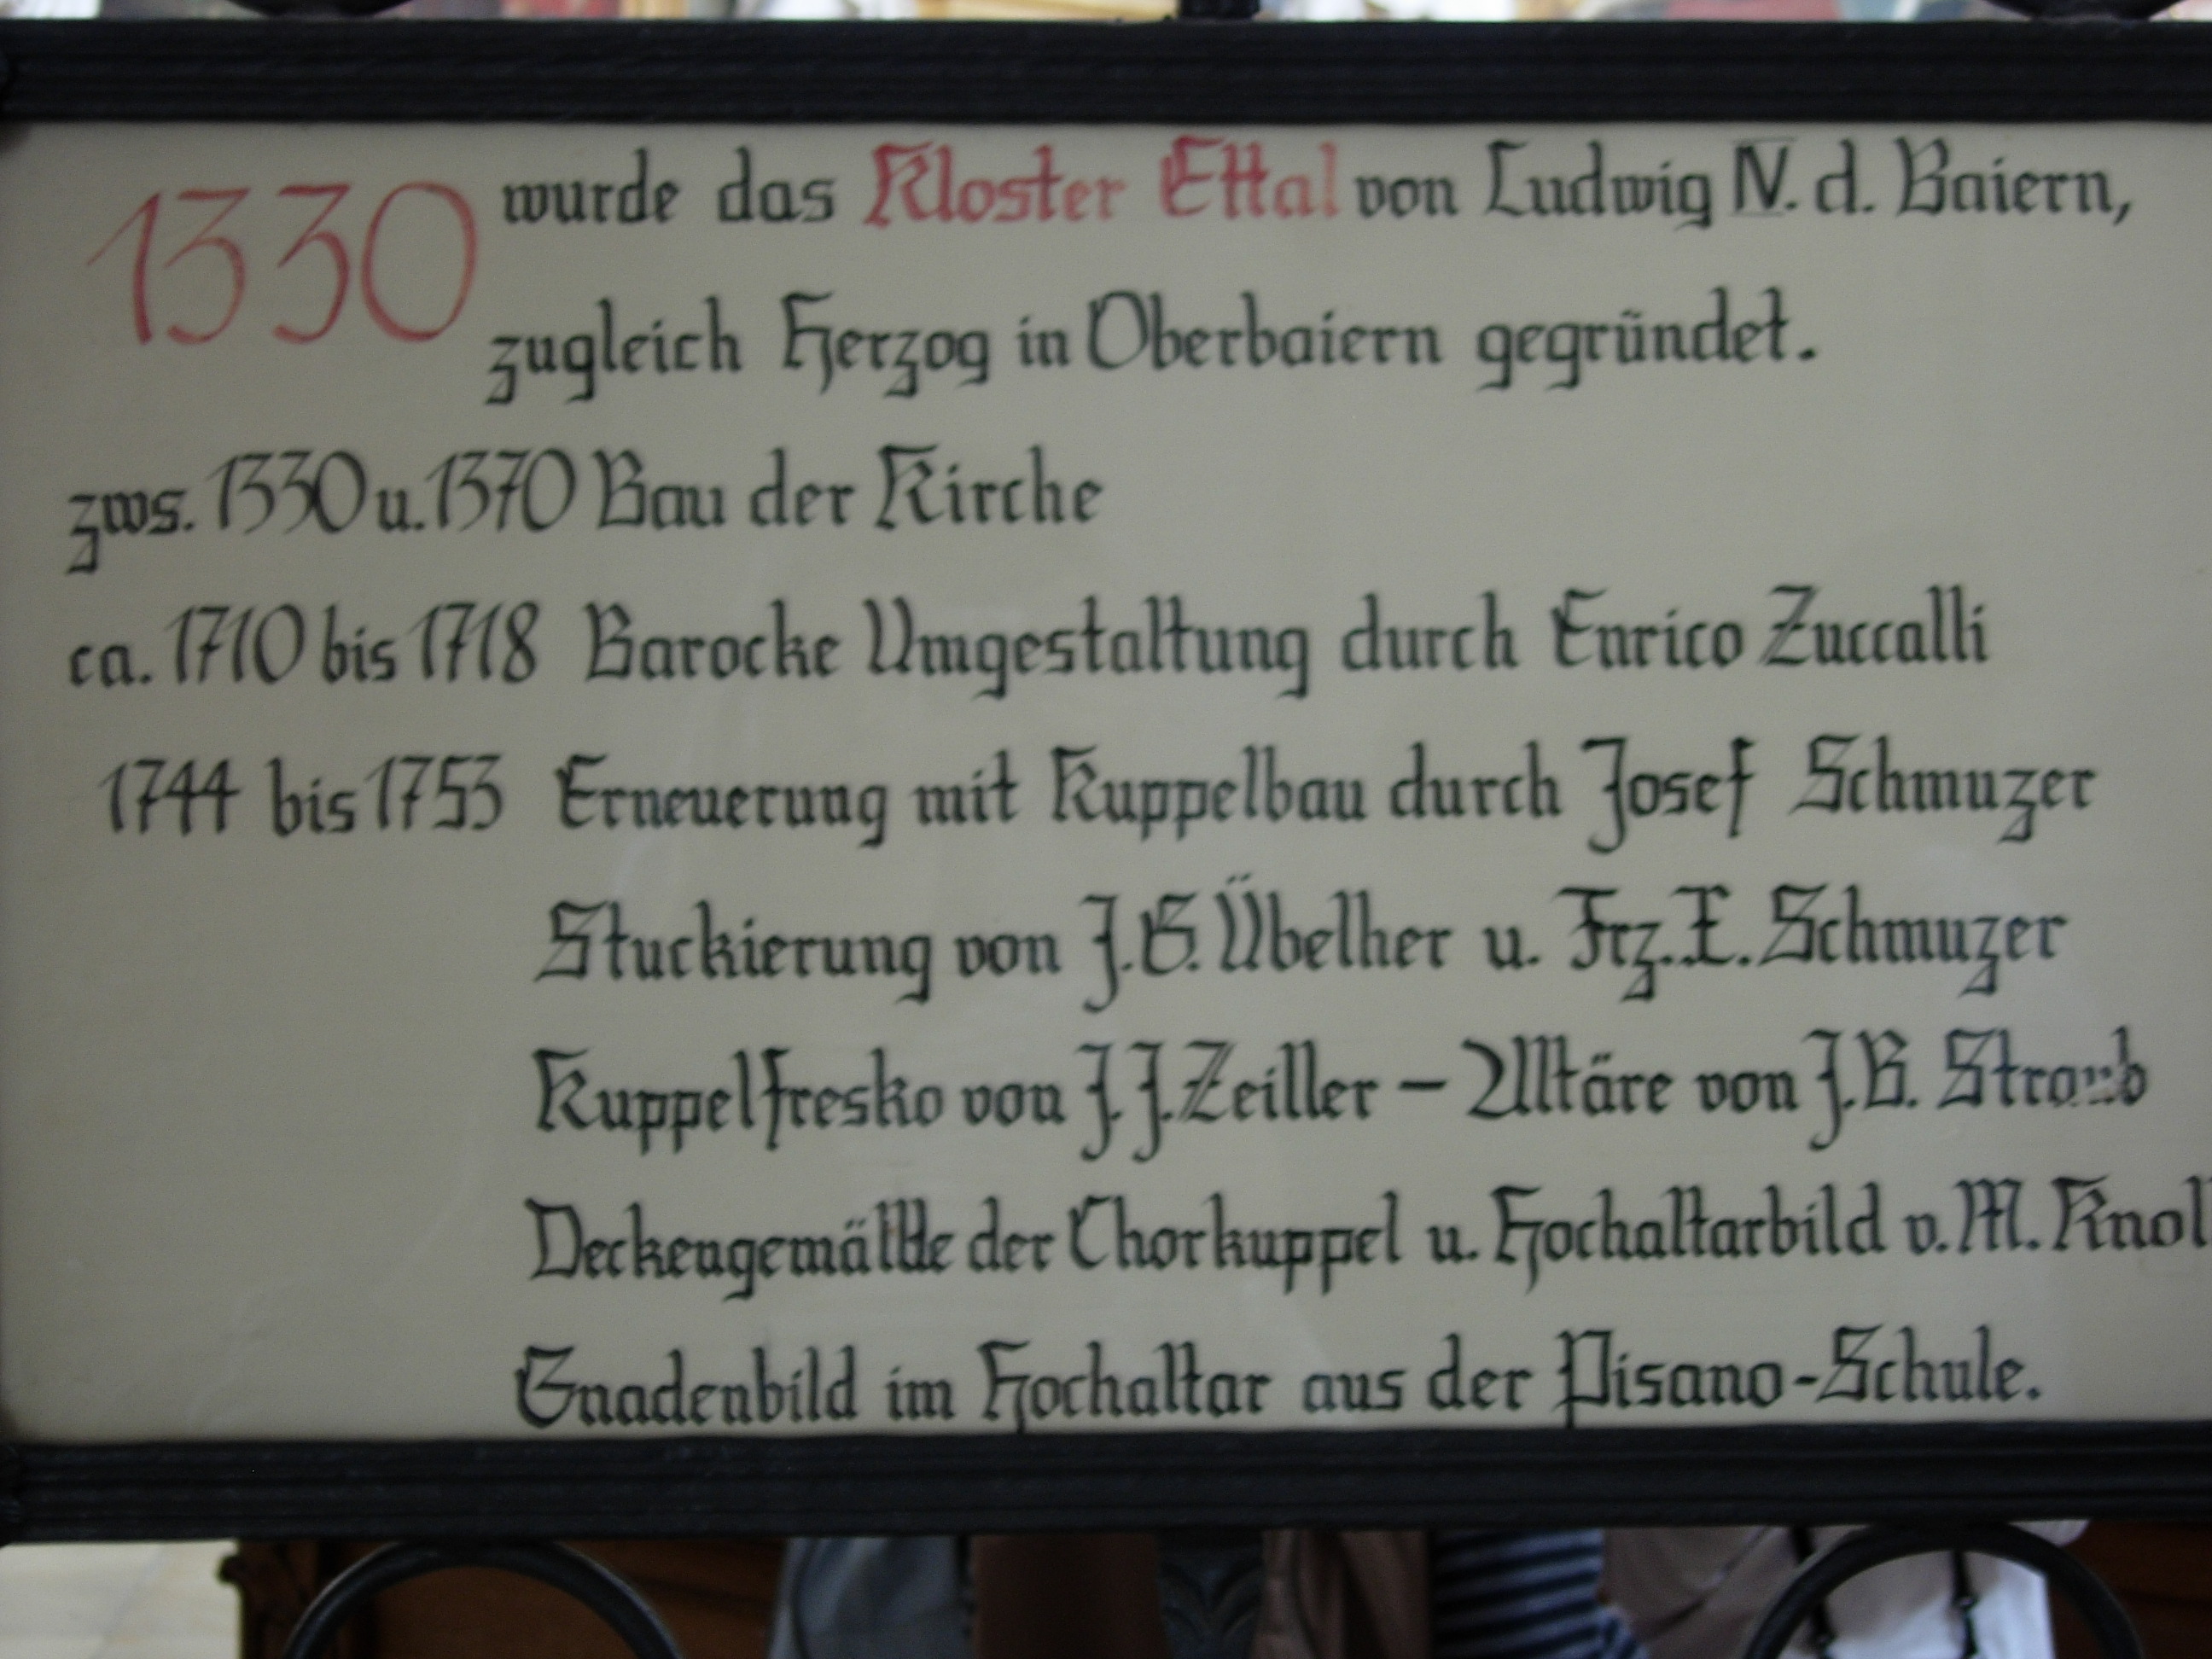 1330 wurde das Kloster Ettal von Ludwig IV. d. Baiern,
zugleich Herzog in Oberbaiern gegründet.
zws. 1330 u. 1370 Bau der Kirche
ca. 1710 bis 1718 Barocke Umgestaltung durch Enrico Zuccalli
1744 bis 1753 Erneuerung mit Kuppelbau durch Josef Schmuzer
Stuckierung von J.G. Übelher u. Frz. X. Schmuzer
Kuppelfresko von J.J. Zeiller – Altäre von J.B. Straub
Deckengemälde der Chorkuppel u. Hochaltarbild v. M. Knoll
Gnadenbild im Hochaltar aus der Pisano-Schule.